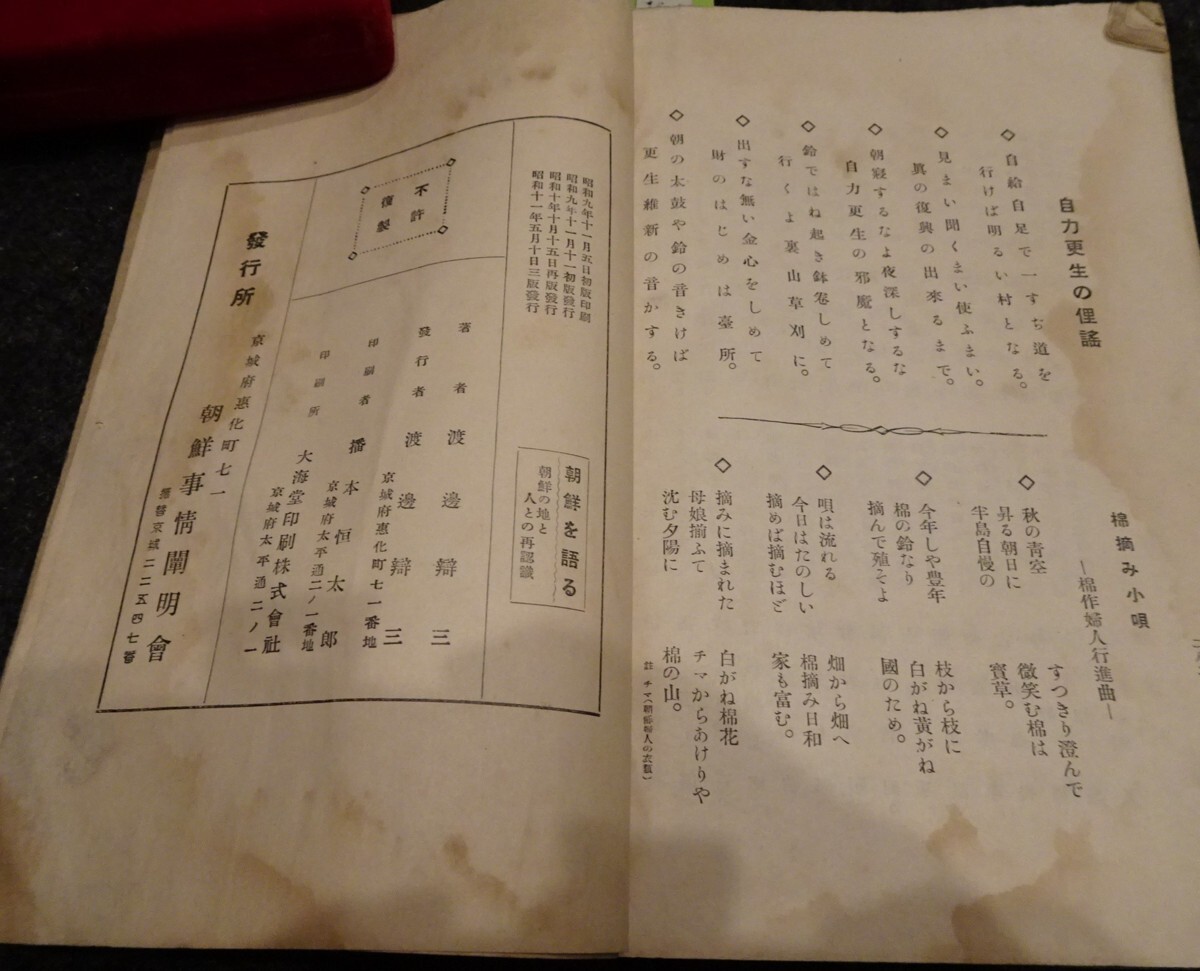 自力更生の俚謠
◇自給自足で一すぢ道を
行けば明るい村となる。
◇見まい聞くまい使ふまい。
眞の復興の出來るまで。
◇朝寢するなよ夜深しするな
自力更生の邪魔となる。
◇鈴ではね起き鉢卷しめて
行くよ裏山草刈に。
◇出すな無い金心をしめて
財のはじめは臺所。
◇朝の太鼓や鈴の音きけば
更生維新の音がする。
棉摘み小唄
―棉作婦人行進曲―
◇秋の靑空
昇る朝日に
半島自慢の
すつきり澄んで
微笑む棉は
寶草。
◇今年しや豊年
棉の鈴なり
摘んで殖そよ
枝から枝に
白がね黃がね
國のため。
◇唄は流れる
今日はたのしい
摘めば摘むほど
畑から畑へ
棉摘み日和
家も富む。
◇摘みに摘まれた
母娘揃ふて
沈む夕陽に
白がね棉花
チマからあけりや
棉の山。
註 チマ(朝鮮婦人の衣類)
朝鮮を語る
朝鮮の地と
人との再認識
昭和九年十一月五日初版印刷
昭和九年十一月十一初版發行
昭和十年十月十五日再版發行
昭和十一年五月十日三版發行
不許
復製
著者 渡邊辯三
發行者 渡邊辯三
京城府惠化町七一番地
印刷者 播本恒太郎
京城府太平通二ノ一番地
印刷所 大海堂印刷株式會社
京城府太平通二ノ一
發行所
京城府惠化町七一
朝鮮事情闡明會
振替京城二二五四七番